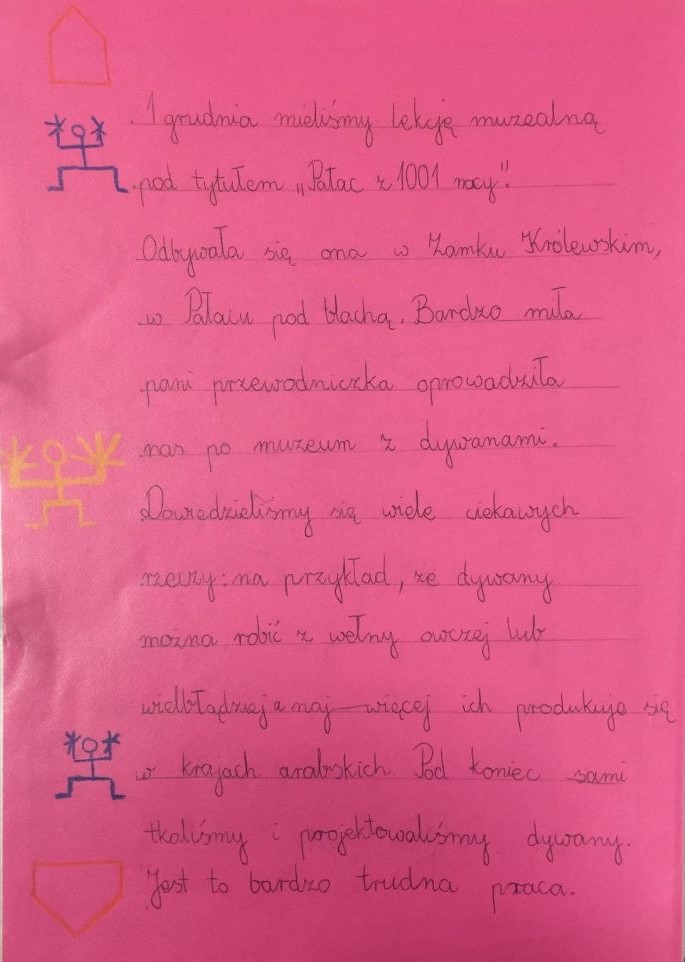 1 grudnia mieliśmy lekcję muzealną
pod tytułem „Pałac z 1001 nocy".
Odbywała się ona w Zamku Królewskim,
w Pałacu pod blachą. Bardzo miła
pani przewodniczka oprowadziła
nas po muzeum z dywanami.
Dowiedzieliśmy się wiele ciekawych
rzeczy: na przykład, że dywany
można robić z wełny owczej lub
wielbłądziej a naj-więcej ich produkuje się
w krajach arabskich. Pod koniec sami
tkaliśmy i projektowaliśmy dywany.
Jest to bardzo trudna praca.